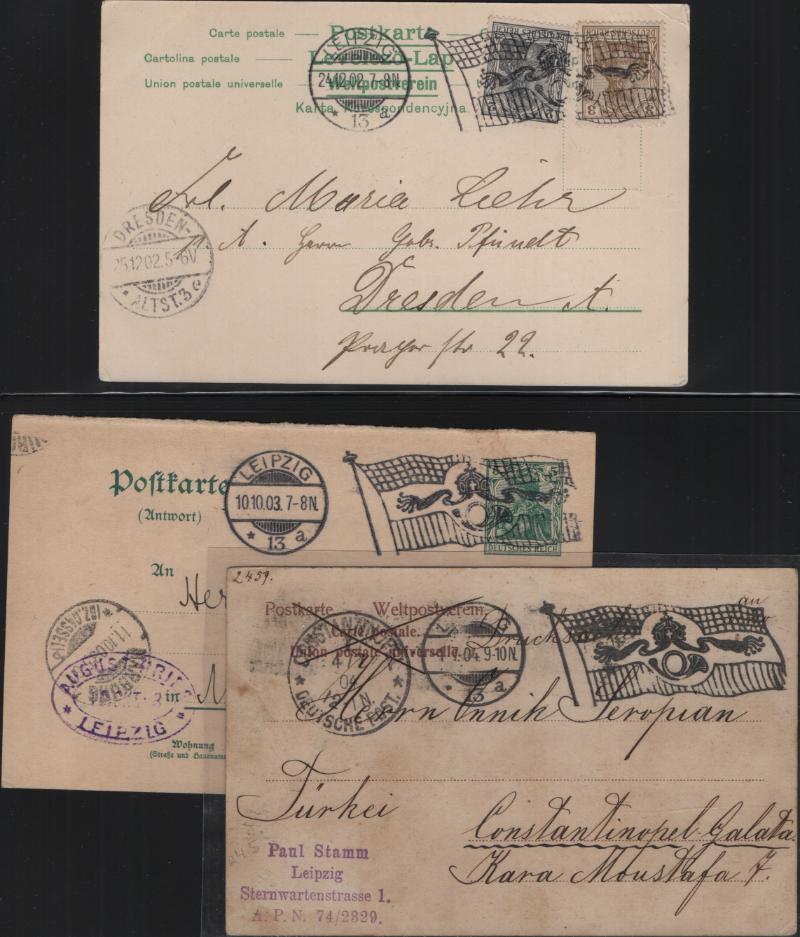 Carte postale — Postkarte
Cartolina postale — Levelező-Lap
Union postale universelle — Weltpostverein
Karta Korespondencyjna
LEIPZIG
24.12.02.7-8N.
* 13 a
DEUTSCHES REICH
2
DEUTSCHES REICH
3
3
Frl. Maria Liehr
p. A. Herrn Gebr. Pfundt
Dresden A.
Prager Str 22.
DRESDEN-
25.12.02.5-6V.
* ALTST.3 e
Postkarte
(Antwort)
An
LEIPZIG
10.10.03.7-8N.
* 13 a
5
DEUTSCHES REICH
in
AUGUST
* LEIPZIG *
Wohnung
(Straße und Hausnummer
2459.
Postkarte. Weltpostverein.
Carte postale.
Union postale universelle.
an
Drucksache
CONSTANTINOPEL
04
DEUTSCHE POST.
04.9-10N.
* 13 a
Herrn Onnik Seropian
Türkei
Constantinopel-Galata.
Kara Moustafa 7.
Paul Stamm
Leipzig
Sternwartenstrasse 1.
A. P. N. 74/2829.